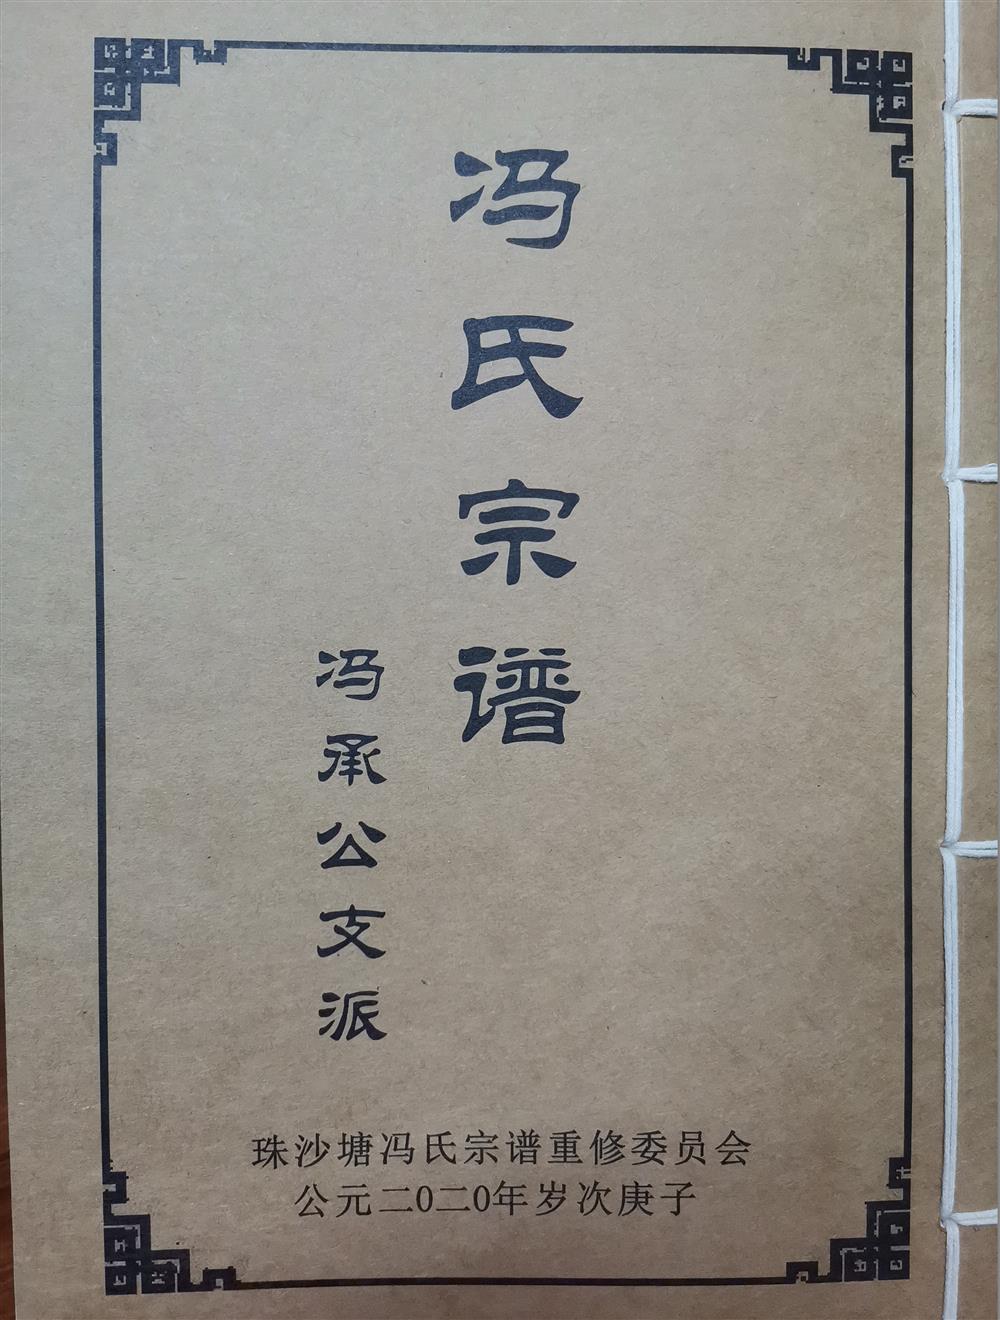 冯氏宗谱
冯承公支派
珠沙塘冯氏宗谱重修委员会
公元二0二0年岁次庚子